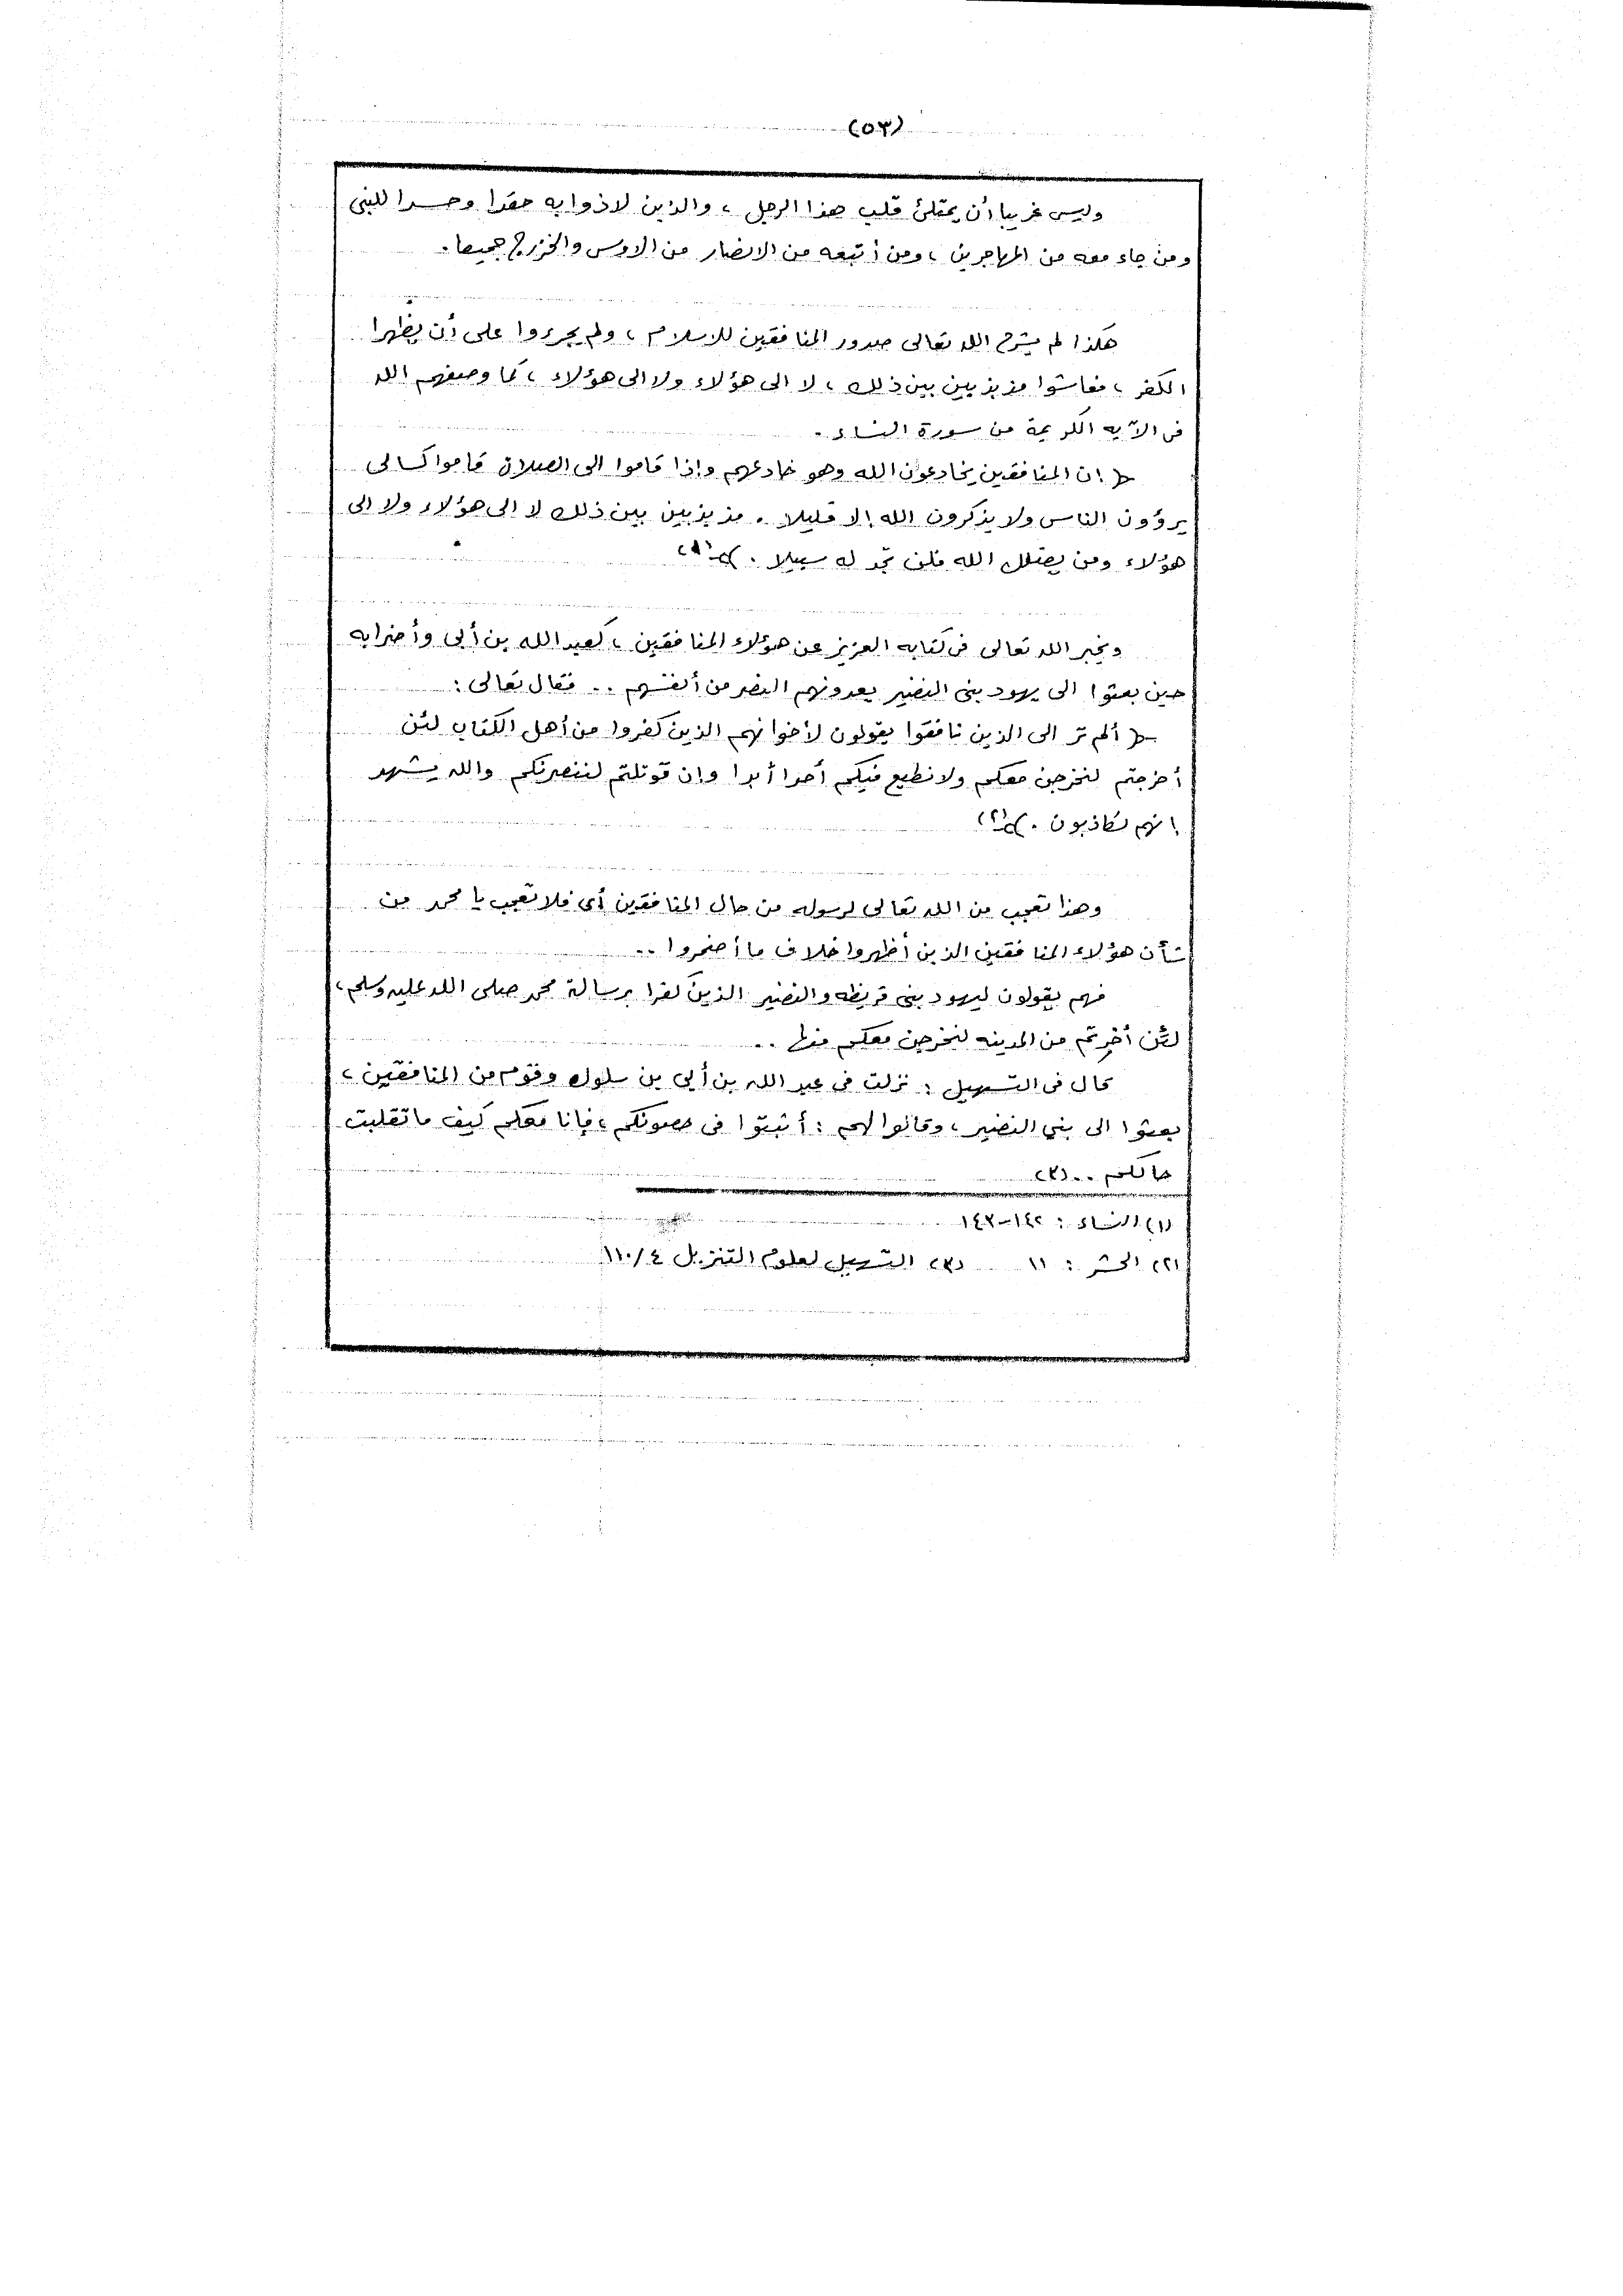 (٥٣)
وليس غريبا أن يمتلئ قلب هذا الرجل ، والذين لاذوا به حقدا وحسدا للنبى
ومن جاء معه من المهاجرين ، ومن أتبعه من الانصار من الاوس والخزرج جميعا .
هكذا لم يشرح الله تعالى صدور المنافقين للاسلام ، ولم يجرءوا على أن يظهرا
الكفر ، فعاشوا مذبذبين بين ذلك ، لا الى هؤلاء ولا الى هؤلاء ، كما وصفهم الله
فى الآيه الكريمة من سورة النساء .
﴿ ان المنافقين يخادعون الله وهو خادعهم وإذا قاموا الى الصلاة قاموا كسالى
يرؤون الناس ولا يذكرون الله إلا قليلا . مذبذبين بين ذلك لا الى هؤلاء ولا الى
هؤلاء ومن يضلل الله فلن تجد له سبيلا . ﴾(١)
ويخبر الله تعالى فى كتابه العزيز عن هؤلاء المنافقين ، كعبد الله بن أبى وأضرابه
حين بعثوا الى يهود بنى النضير يعدونهم النصر من أنفسهم .. فقال تعالى :
﴿ ألم تر الى الذين نافقوا يقولون لأخوانهم الذين كفروا من أهل الكتاب لئن
أخرجتم لنخرجن معكم ولا نطيع فيكم أحدا أبدا وإن قوتلتم لننصرنكم والله يشهد
إنهم لكاذبون . ﴾(٢)
وهذا تعجب من الله تعالى لرسوله من حال المنافقين أى فلا تعجب يا محمد من
شأن هؤلاء المنافقين الذين أظهروا خلاف ما أضمروا ..
فهم يقولون ليهود بنى قريظه والنضير الذين كفرا برسالة محمد صلى الله عليه وسلم ،
لئن أخرجتم من المدينه لنخرجن معكم منها ..
قال فى التسهيل : نزلت فى عبد الله بن أبي بن سلول وقوم من المنافقين ،
بعثوا الى بني النضير ، وقالوا لهم : أثبتوا فى حصونكم ، فإنا معكم كيف ما تقلبت
حالكم .. (٣)
(١) النساء : ١٤٢-١٤٣
(٢) الحشر : ١١ (٣) التسهيل لعلوم التنزيل ٤/١١٠